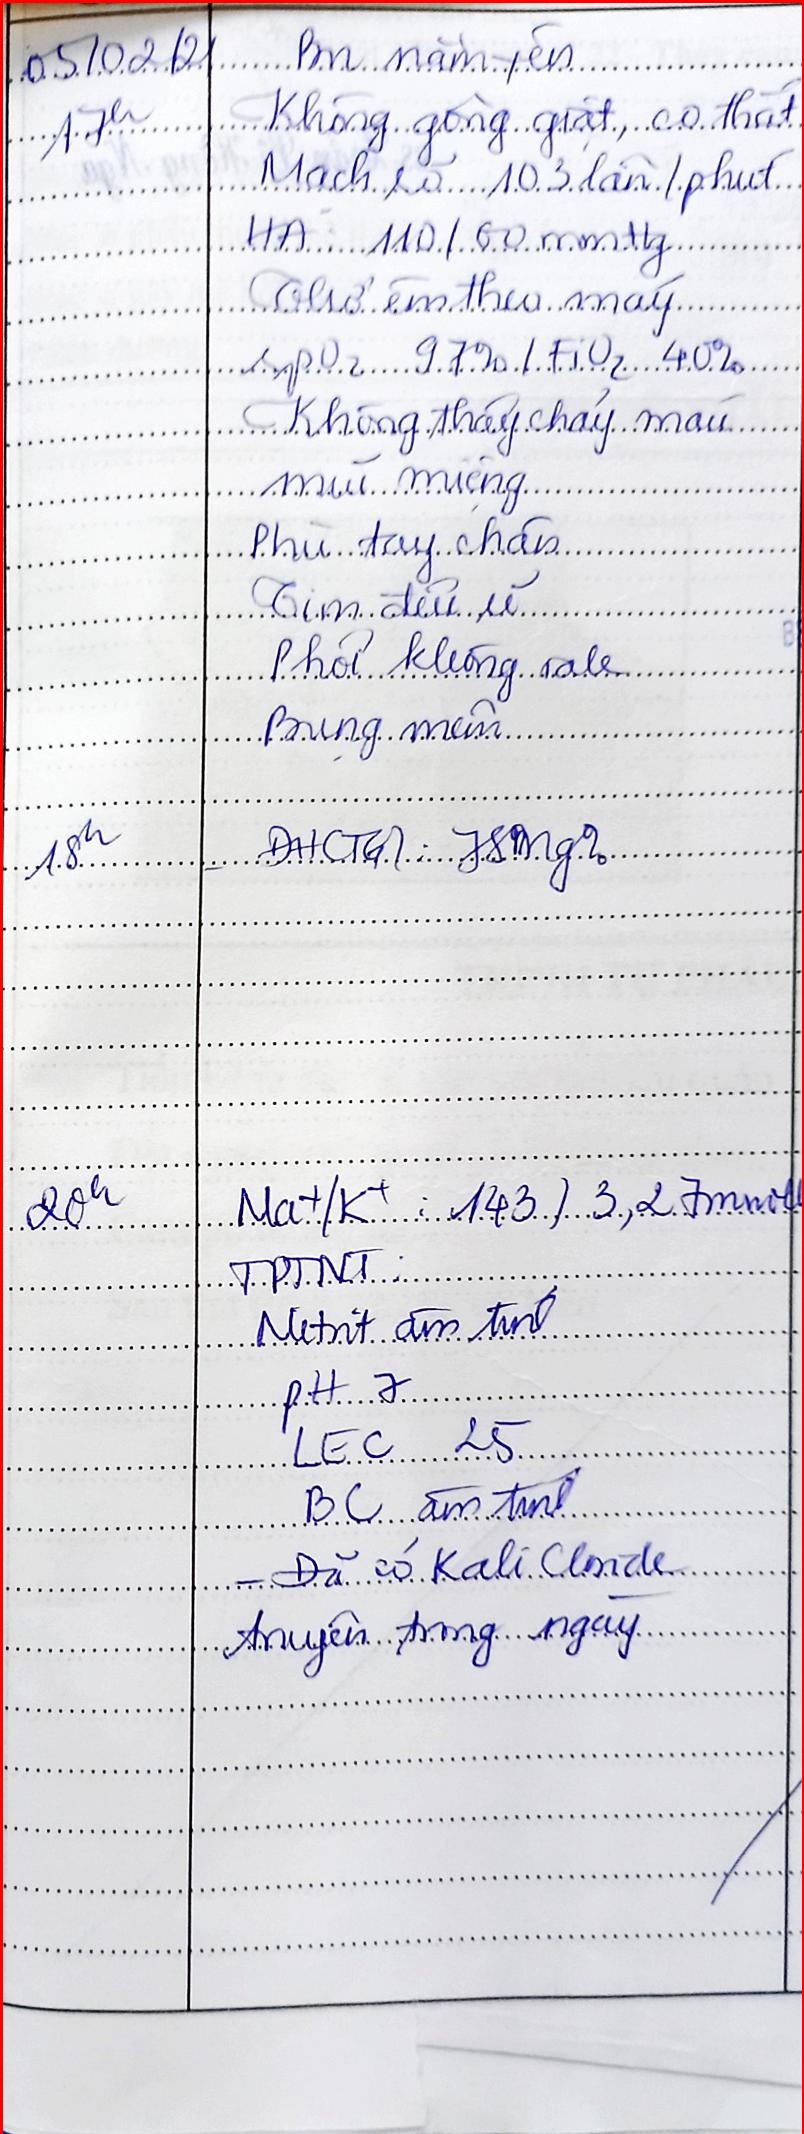 05/02/21 Bn nằm yên
17h Không gồng giật, co thắt
Mạch rõ 103 lần/phút
HA 110/60 mmHg
Thở êm theo máy
SpO2 97% / FiO2 40%
Không thấy chảy máu
mũi miệng
Phù tay chân
Tim đều rõ
Phổi không rale
Bụng mềm
18h - ĐHCT: 78mg%
20h Na+/K+ : 143 / 3,27mmol
TPTNT:
Nitrit âm tính
pH 7
LEC 25
BC âm tính
- Đã có Kali Cloride
truyền trong ngày